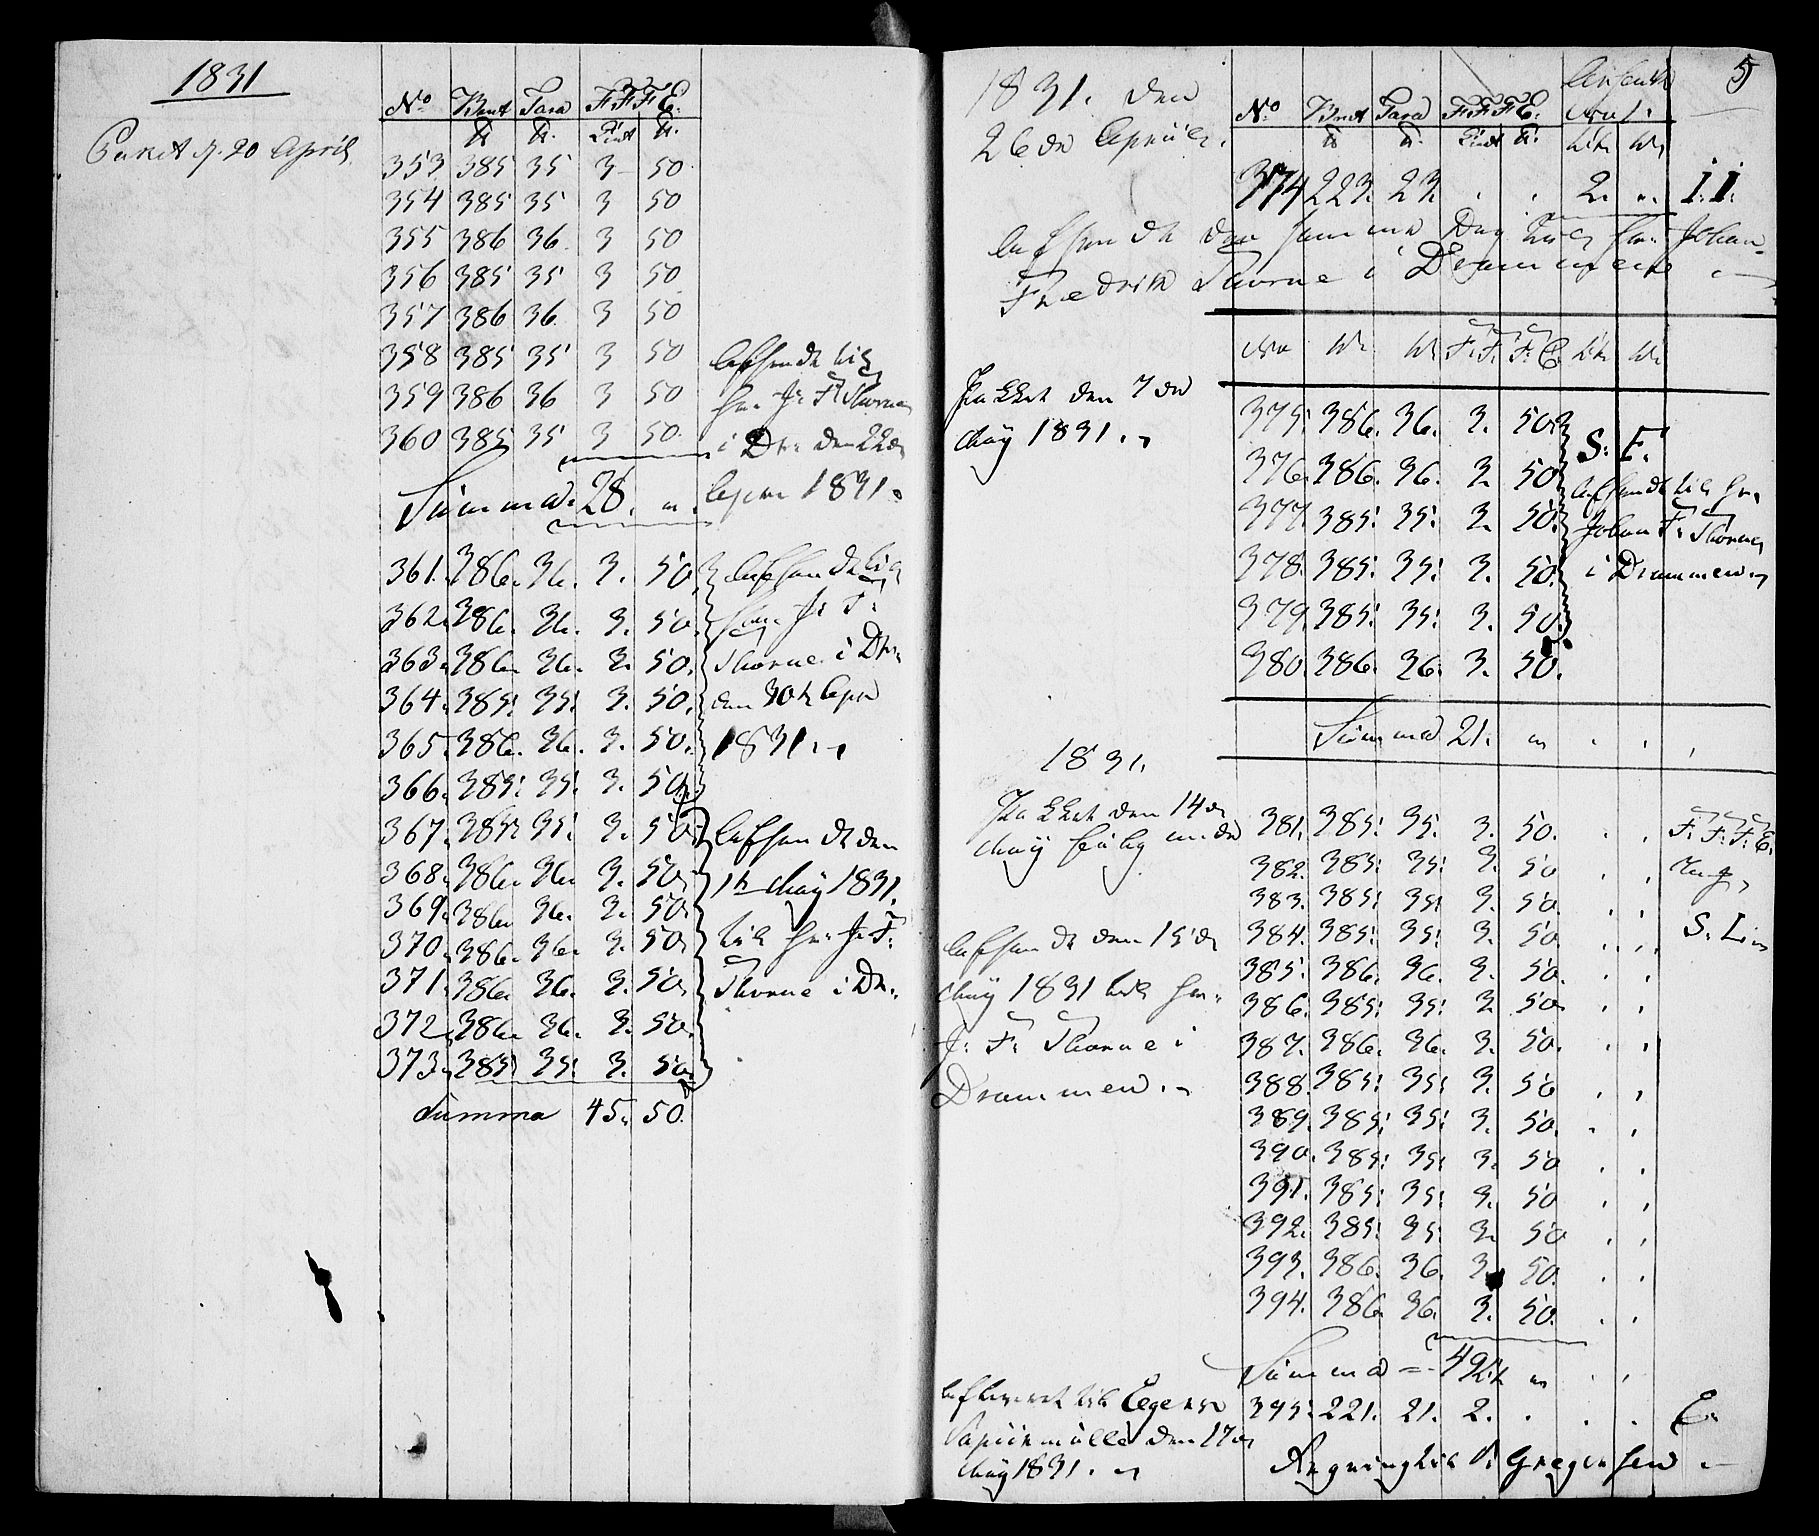 1831
Paket d. 20 April
No Brut Tara F F F E.
℔ ℔. Lispt ℔.
353 385 35 3 50
354 385 35 3 50
355 386 36 3 50
356 385 35 3 50
357 386 36 3 50
358 385 35 3 50
359 386 36 3 50
360 385 35 3 50
Afsendt til
Hr. J: F: Thorne
i Dr: den 22de
Apr 1831.
Summa 28. "
361. 386. 36. 3. 50.
362. 386. 36. 3. 50.
363. 386. 36. 3. 50.
364. 385. 35. 3. 50.
365. 386. 36. 3. 50.
366. 385. 35. 3. 50.
Afsendt til
Herr J: F:
Thorne i Dr.
den 30te Apr
1831.
367. 385. 35. 3. 50.
368. 386. 36. 3. 50.
369. 386. 36. 3. 50.
370. 386. 36. 3. 50.
371. 386. 36. 3. 50.
372. 386. 36. 3. 50.
373. 385. 35. 3. 50.
Afsendt den
1te Maÿ 1831.
til Hr: J: F:
Thorne i Dr.
Summa 45. 50.
5
1831. den
26de Aprill.
No Brut Tara F. F. F. E.
℔ ℔.
374 223. 23. . . 2. ". I. I.
Afsendt den samme Dag til Hr: Johan
Fredrik Thorne i Drammen
F. F. F. E.
Pakket den 7de
Maÿ 1831.
375. 386. 36. 3. 50.
376. 386. 36. 3. 50
377. 385. 35. 3. 50.
378. 385. 35. 3. 50.
379. 385. 35. 3. 50.
380. 386. 36. 3. 50.
S. F.
Afsendt til Hr.
Johan F: Thorne
i Drammen
Summa 21. " . . .
1831.
Pakket den 14de
Maÿ
381. 385. 35. 3. 50. . . F. F. F. E.
382. 385. 35. 3. 50 . .
383. 385. 35. 3. 50. . .
384. 385. 35. 3. 50 . . S.
385. 386. 36. 3. 50. . .
386. 385. 35. 3. 50. . .
387. 386. 36. 3. 50. . .
388. 385. 35. 3. 50 . .
389. 385. 35. 3. 50. . .
390. 385. 35. 3. 50 . .
391. 385. 35. 3. 50 . .
392. 385. 35. 3. 50 . .
393. 386. 36. 3. 50. . .
394. 386. 36. 3. 50. . .
Afsendt den 15de
Maÿ 1831 til Hr.
J: F: Thorne i
Drammen.
Summa = 49 " . .
Afleveret til Egers
Papiirmølle den 17de
Maÿ 1831.
395. 221. 21. 2. . . . E.
Regning til Gregersen